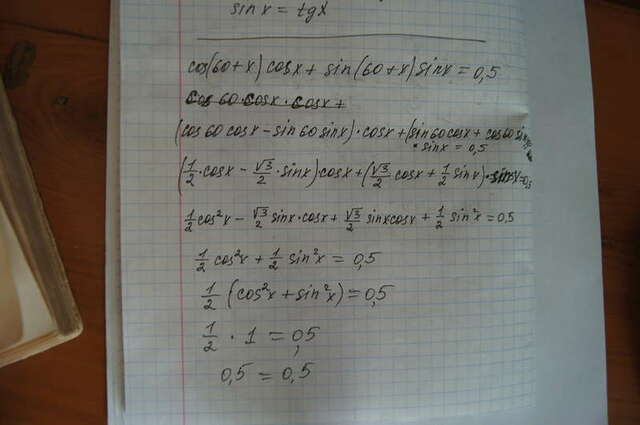 sin x = tgx
cos(60+x)cosx + sin(60+x)sinx = 0,5
cos 60·cosx · cosx +
(cos60cosx - sin60sinx)·cosx + (sin60cosx + cos60sinx)
· sinx = 0,5
(1/2·cosx - √3/2·sinx)cosx + (√3/2 cosx + 1/2 sinx)·sinx = 0,5
1/2cos²x - √3/2 sinx·cosx + √3/2 sinxcosx + 1/2 sin²x = 0,5
1/2 cos²x + 1/2 sin²x = 0,5
1/2 (cos²x + sin²x) = 0,5
1/2 · 1 = 0,5
0,5 = 0,5